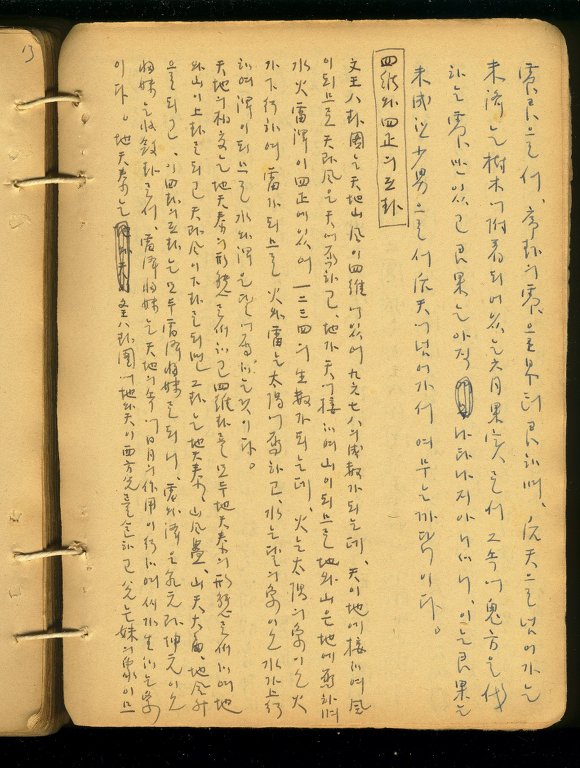 震艮으로서, 의 震으로부터 艮하며, 으로 넘어가는
未濟는 樹木에 附着되어 있는 六月果實로서 그속에 鬼方을 伐
하는 震下 있고 艮果는 아직 나타나지 아니하니, 이는 艮果는
未成한 少男으로서 에 넘어가서 여무는 까닭이다。
四維와 四正의 互卦
文王八卦圖는 天地山風이 四維에 있어 九六七八의 成數가 되는데, 天이 地에 接하여 風
이 되므로 天과 風은 天에 屬하고, 地가 天에 接하여 山이 되므로 地와 山은 地에 屬하며
水火雷澤이 四正에 있어 一二三四의 生數가 되는데, 火는 太陽의 象이오 火
가 下行하여 雷가 되므로 火와 雷는 太陽에 屬하고, 水는 달의 象이오 水가 上行
하여 澤이 되므로 水와 澤은 달에 屬하는 것이다。
天地의 相交는 地天泰의 形態로서 四維卦를 모두 地天泰의 形態로서 하여 地
와 山이 上卦로 되고 天과 風이 下卦로 되면 그 卦는 地天泰, 山風蠱, 山天大畜, 地風升
으로 되고, 이 四卦의 互卦는 모두 雷澤歸妹로 되니, 雷와 澤은 乾元과 坤元이오
歸妹는 收斂卦로서, 雷澤歸妹는 天地의 속에 日月의 作用이 行하여 씨가 生하는 象
이다。 地天泰는 文王八卦圖에 地와 天이 西方 하고 兌는 妹의 象이므
13